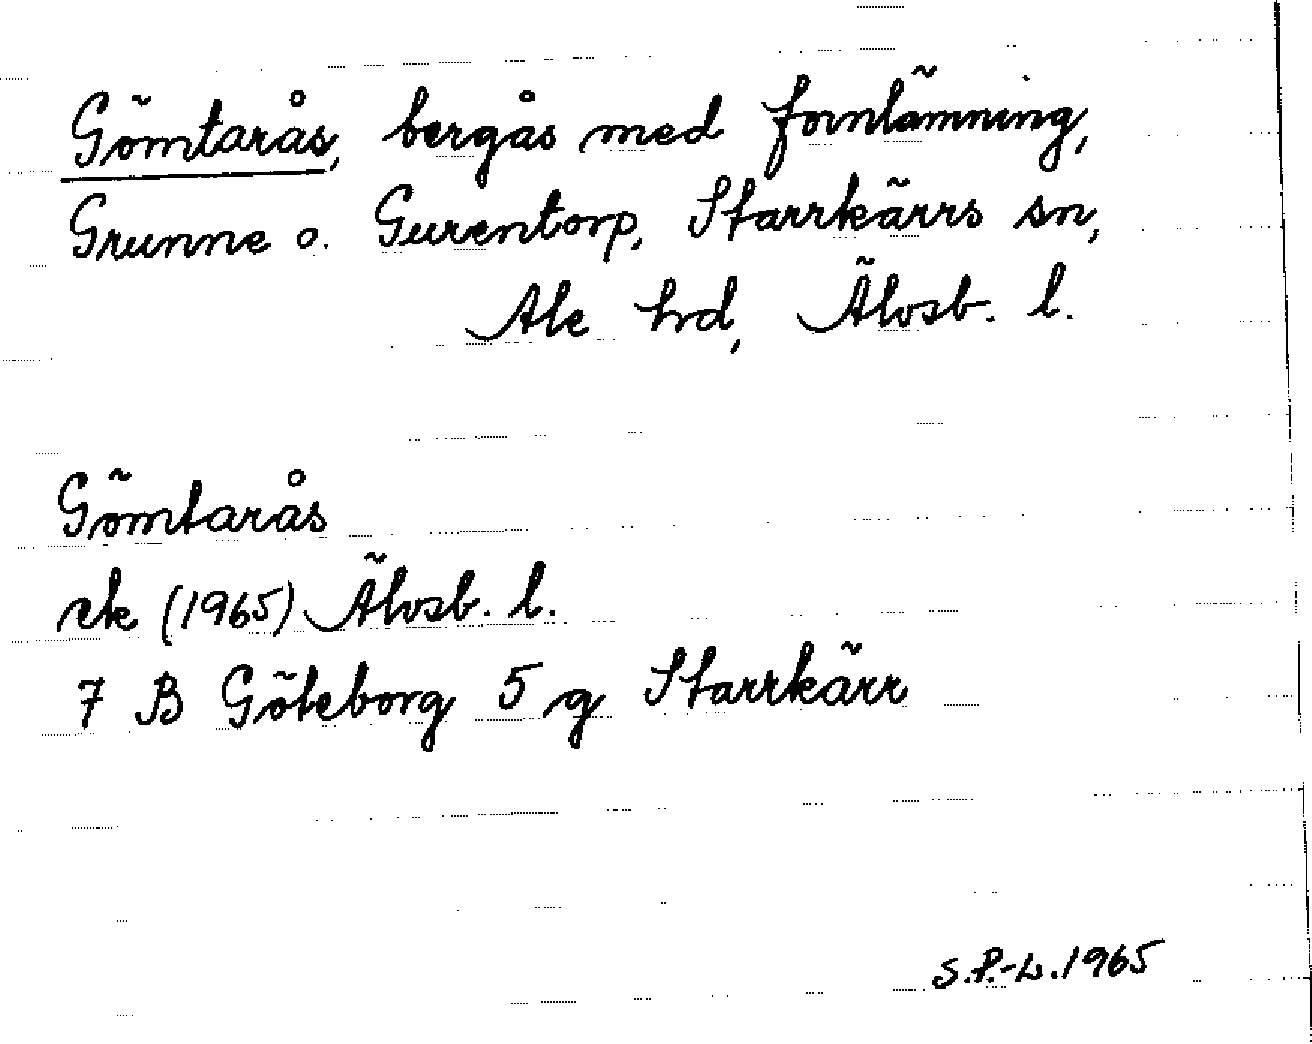 Gömtarås, bergås med fornlämning,
Grunne o. Gurentorp, Starrkärrs sn,
Ale hd, Älvsb. l.
Gömtarås
ek (1965) Älvsb. l.
7 B Göteborg 5 g Starrkärr
S.P.-L. 1965